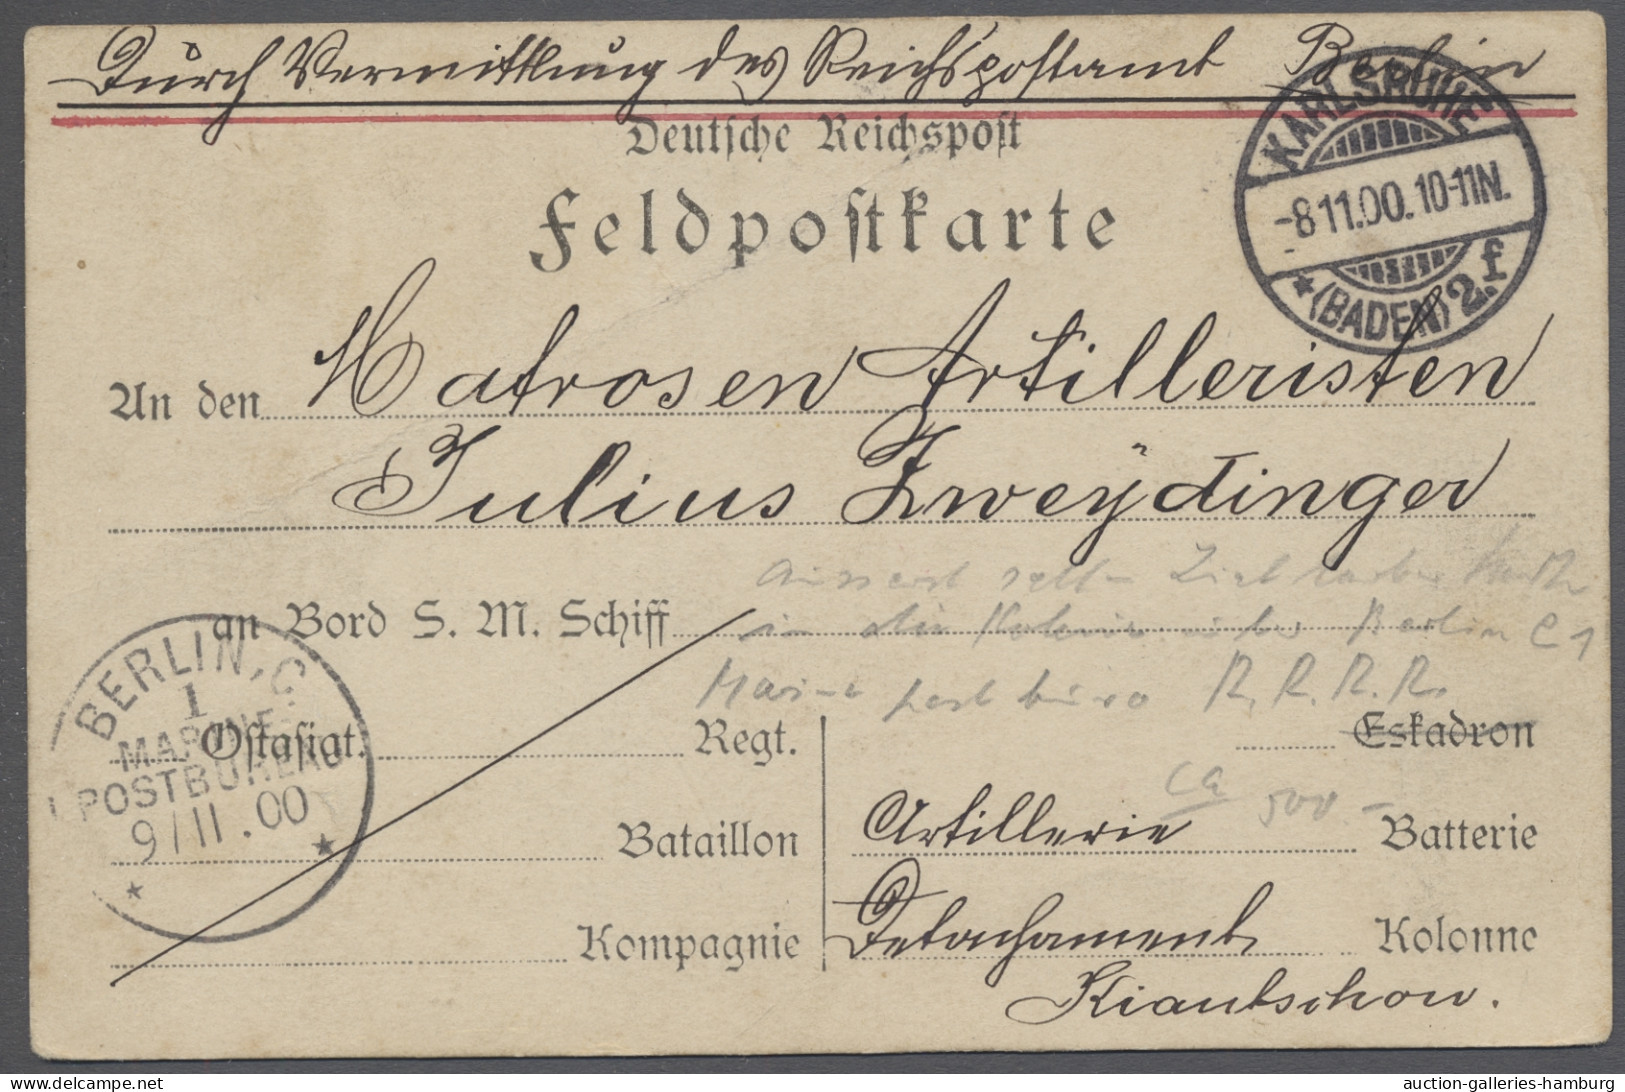 Durch Vermittlung des Reichspostamt Berlin
Deutsche Reichspost
Feldpostkarte
KARLSRUHE
-8.11.00.10-11N.
* (BADEN) 2.f
An den Matrosen Artilleristen
Julius Zweÿdinger
an Bord S. M. Schiff
in die Kolonie über Berlin C 1
Marine postbüro R. R. R. R.
BERLIN, C
1
MARINE-
POSTBUREAU
9/11.00
* *
Ostasiat. Regt.
Eskadron
ca 500 -
Bataillon
Artillerie Batterie
Kompagnie
Detachament Kolonne
Kiautschou.
auction-galleries-hamburg